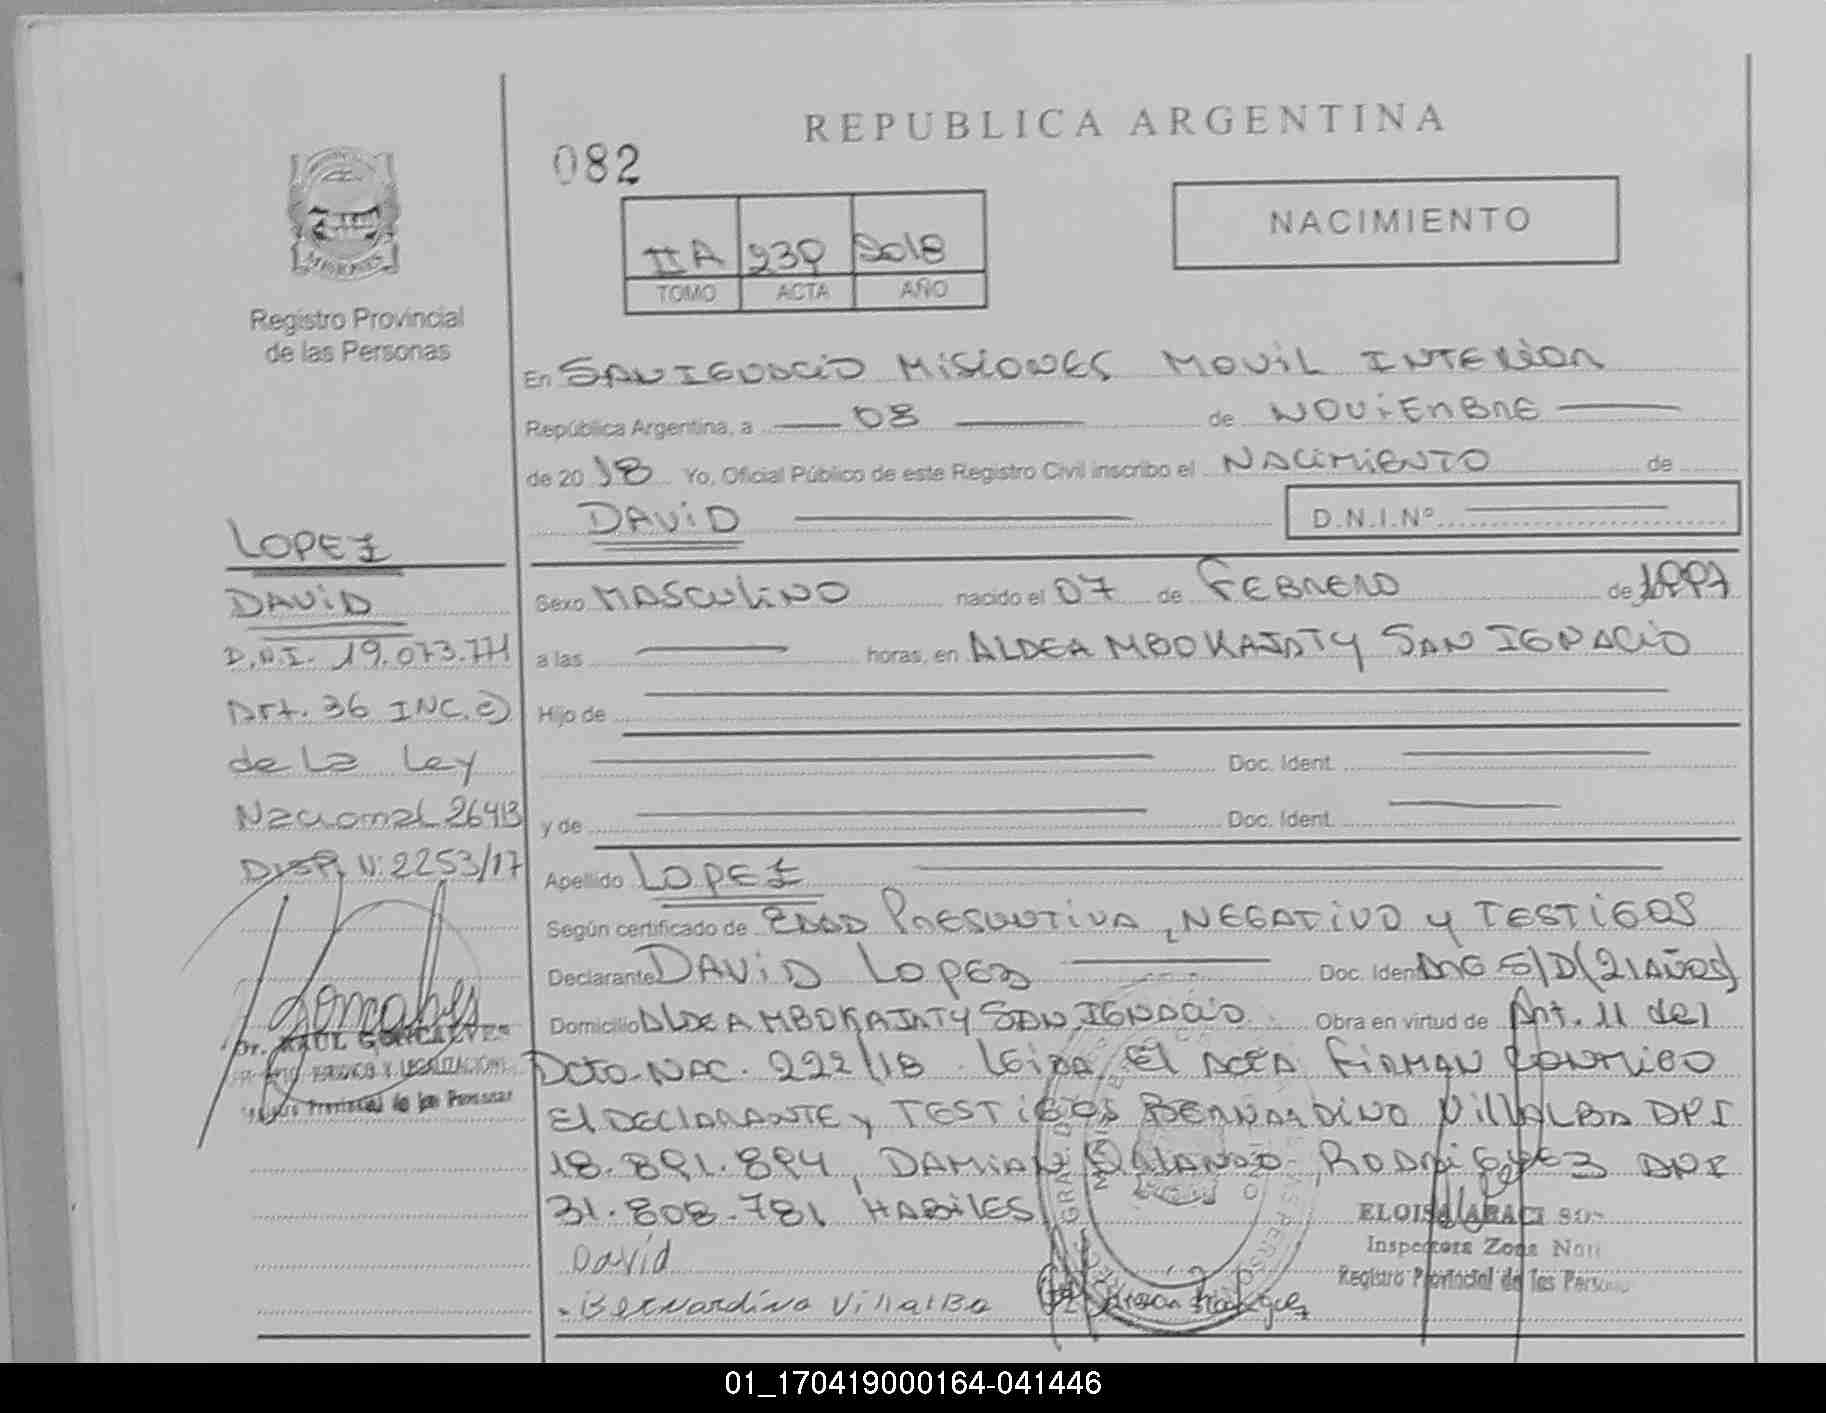 REPUBLICA ARGENTINA
082
NACIMIENTO
II A 239 2018
TOMO ACTA AÑO
MISIONES
Registro Provincial
de las Personas
En SAN IGNACIO MISIONES MOVIL INTERIOR
República Argentina, a 08 de NOVIEMBRE
de 2018 Yo, Oficial Público de este Registro Civil inscribo el NACIMIENTO de
DAVID D.N.I.Nº
LOPEZ
DAVID
D.N.I. 19.073.771
Art. 36 INC. e)
de La Ley
Nacional 26413
DISP. N: 2253/17
Dr. RAUL GONCALVES
JURIDICO Y LEGALIZACIONES
Registro Provincial de las Personas
Sexo MASCULINO nacido el 07 de FEBRERO de 1997
a las horas, en ALDEA MBOKAJATY SAN IGNACIO
Hijo de
Doc. Ident.
y de Doc. Ident.
Apellido LOPEZ
Según certificado de EDAD PRESUNTIVA, NEGATIVO y TESTIGOS
Declarante DAVID LOPEZ Doc. Ident. DNI S/D (21 AÑOS)
Domicilio ALDEA MBOKAJATY SAN IGNACIO Obra en virtud de Art. 11 del
Dcto. NAC. 222/18. Leida El ACTA FIRMAN CONMIGO
El DECLARANTE y TESTIGOS BERNARDINO VillALBA DNI
18.891.894, DAMIAN ORLANDO RODRIGUEZ DNI
31.808.781 HABILES
David
Bernardino VillalBa
ELOISA ARACI
Inspectora Zona
Registro Provincial de las Personas
01_170419000164-041446